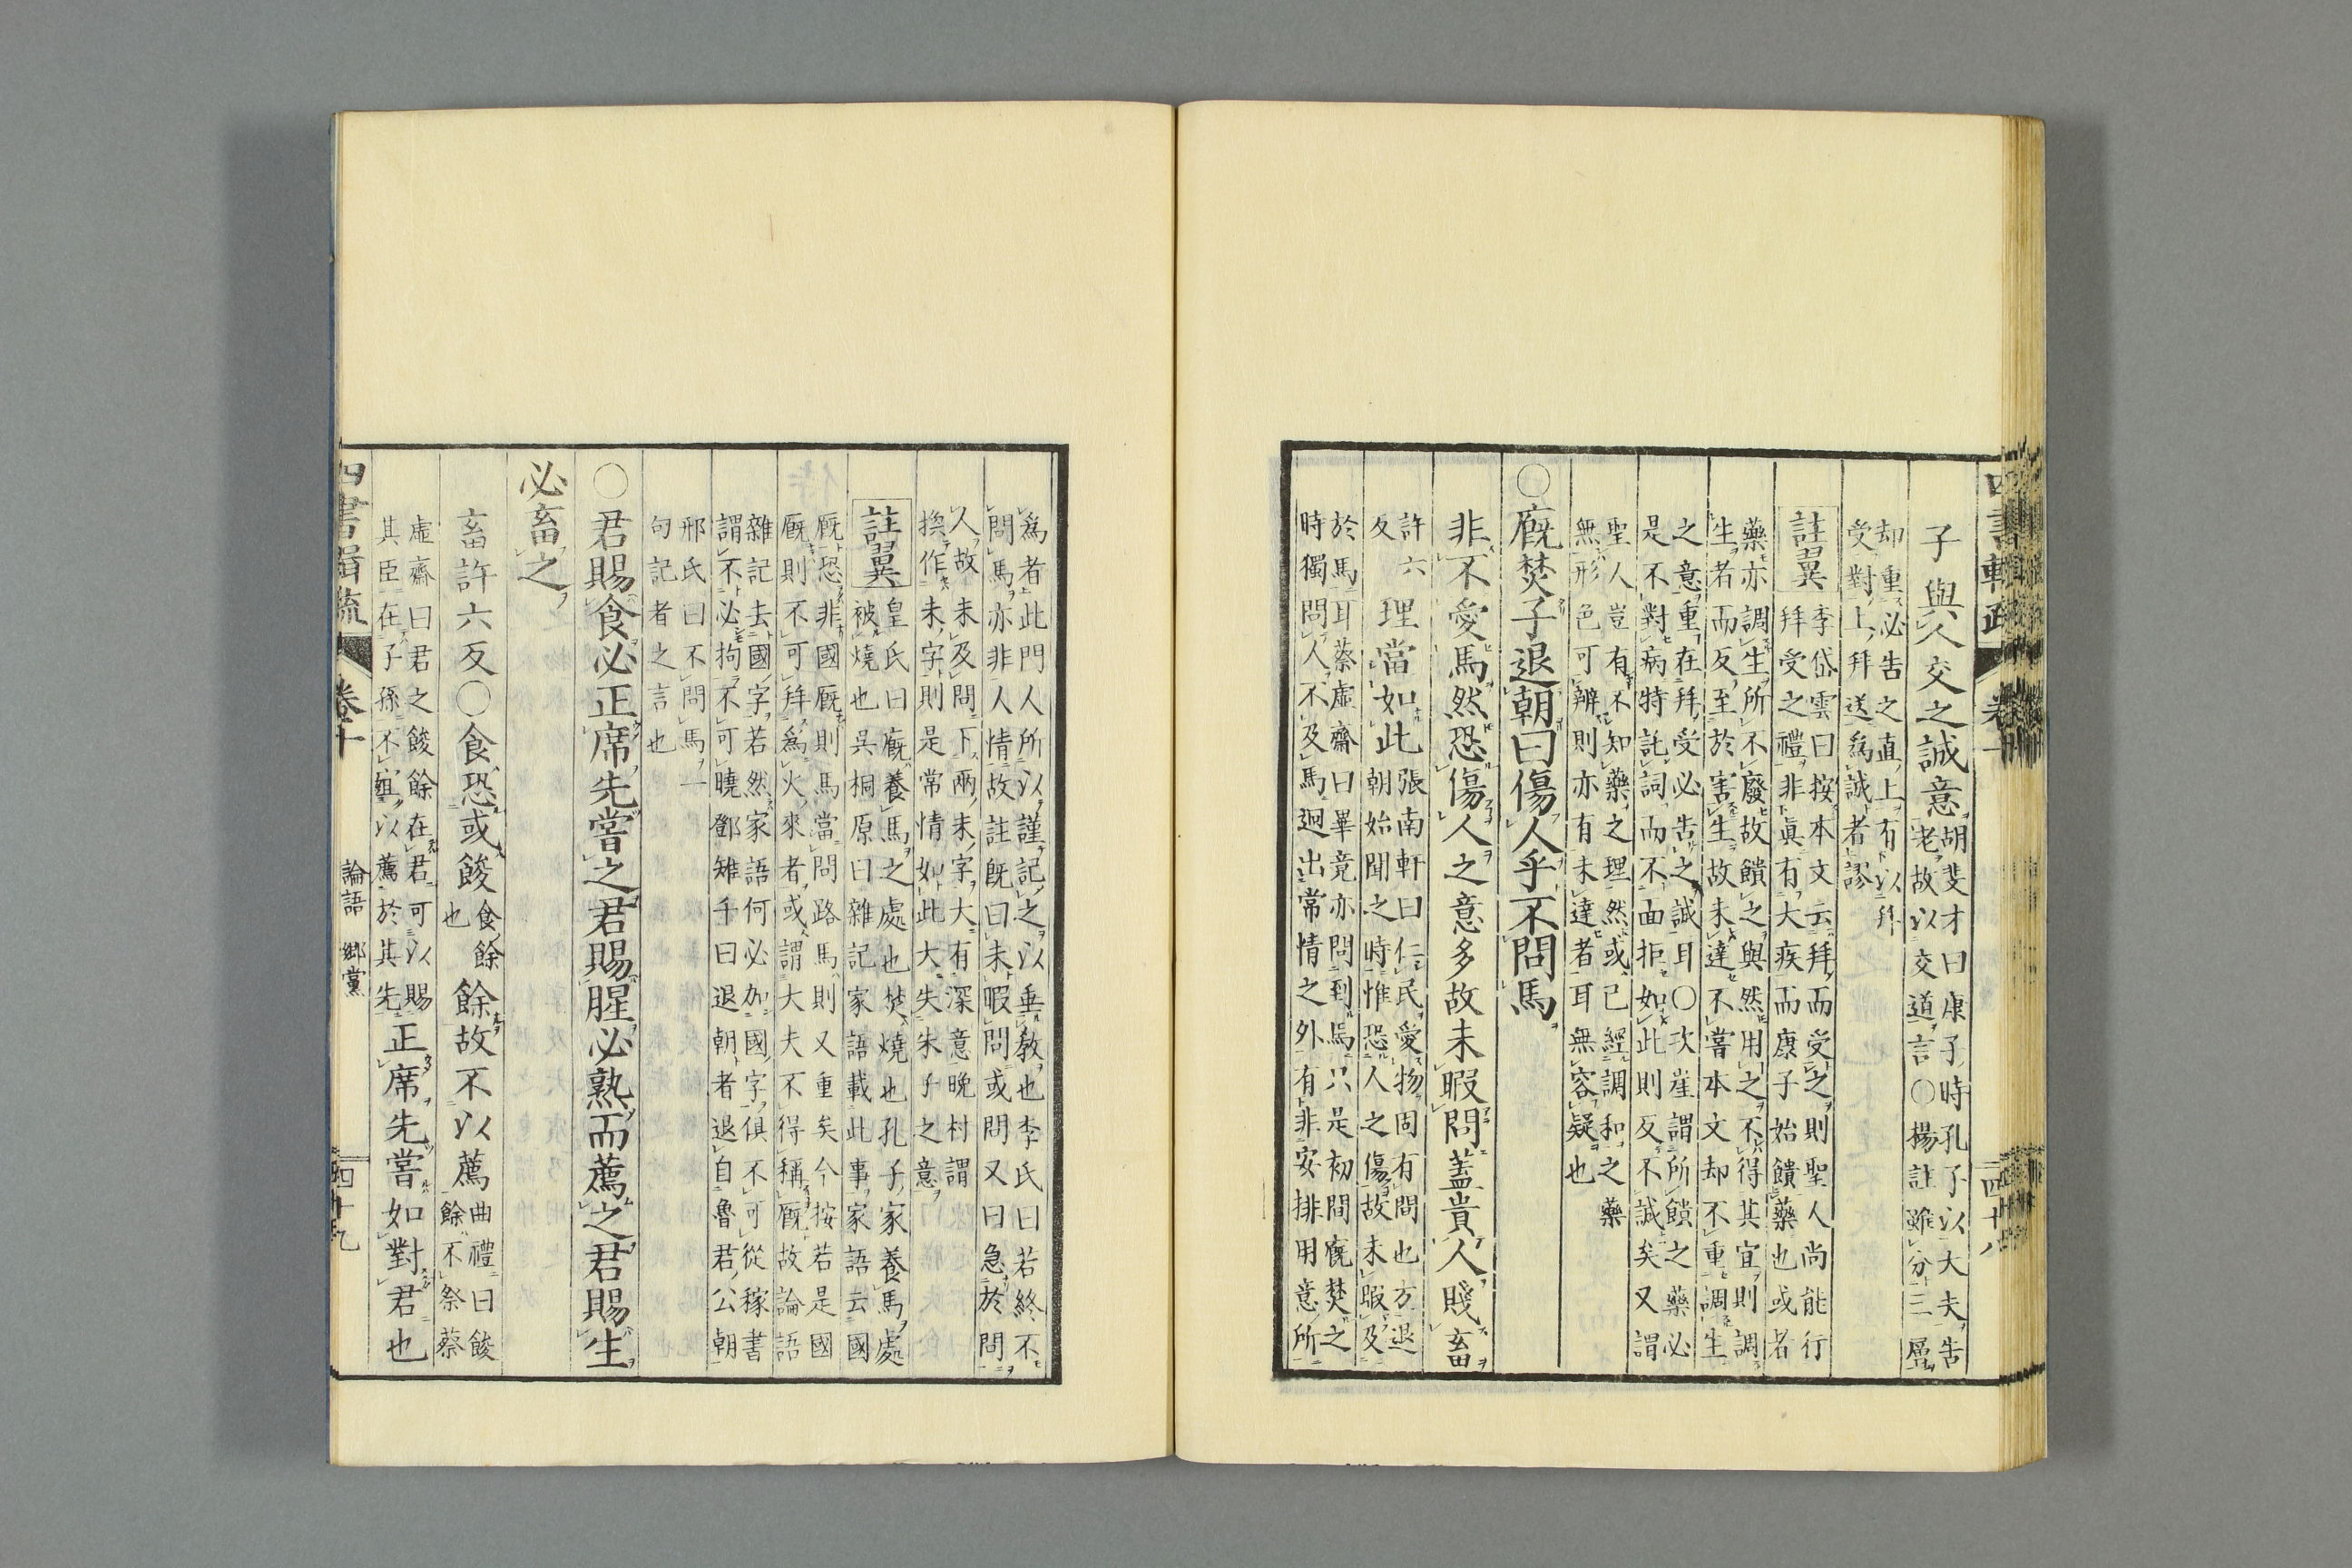 四書輯疏
卷十
四十八
子與人交之誠意
胡斐才曰康子時孔子以大夫告
老故以交道言〇楊註雖分三層
却重必告之直上有以拜
受對上拜送爲誠者謬
註翼
李岱雲曰按本文云拜而受之則聖人尚能行
拜受之禮非眞有大疾而康子始饋藥也或者
藥亦調生所不廢故饋之與然用之不得其宜則調
生者而反至於害生故未達不嘗本文却不重調生
之意重在拜受必告之誠耳〇次崖謂所饋之藥必
是不對病特託詞而不面拒如此則反不誠矣又謂
聖人豈有不知藥之理然或已經調和之藥
無形色可辨則亦有未達者耳無容疑也
〇廐焚子退朝曰傷人乎不問馬
非不愛馬然恐傷人之意多故未暇問蓋貴人賤畜
許六
反
理當如此
張南軒曰仁民愛物固有間也方退
朝始聞之時惟恐人之傷故未暇及
於馬耳蔡虛齋曰畢竟亦問到馬只是初間廐焚之
時獨問人不及馬迥出常情之外有非安排用意所
爲者此門人所以謹記之以垂教也李氏曰若終不
問馬亦非人情故註旣曰未暇問或問又曰急於問
人故未及問下兩未字大有深意晚村謂
換作未字則是常情如此大失朱子之意
註翼
皇氏曰廐養馬之處也焚燒也孔子家養馬處
被燒也吳桐原曰雜記家語載此事家語云國
廐恐非國廐則馬當問路馬則又重矣今按若是國
廐則不可拜爲火來者或謂大夫不得稱廐故論語
雜記去國字若然家語何必加國字俱不可從稼書
謂不必拘不可曉鄧雉千曰退朝者退自魯君公朝
邢氏曰不問馬一
句記者之言也
〇君賜食必正席先嘗之君賜腥必熟而薦之君賜生
必畜之
畜許六反〇食恐或餕
食餘
也
餘故不以薦
曲禮曰餕
餘不祭蔡
虛齋曰君之餕餘在君可以賜
其臣在子孫不宜以薦於其先
正席先嘗如對君也
四書輯疏
卷十
論語 鄉黨
四十九